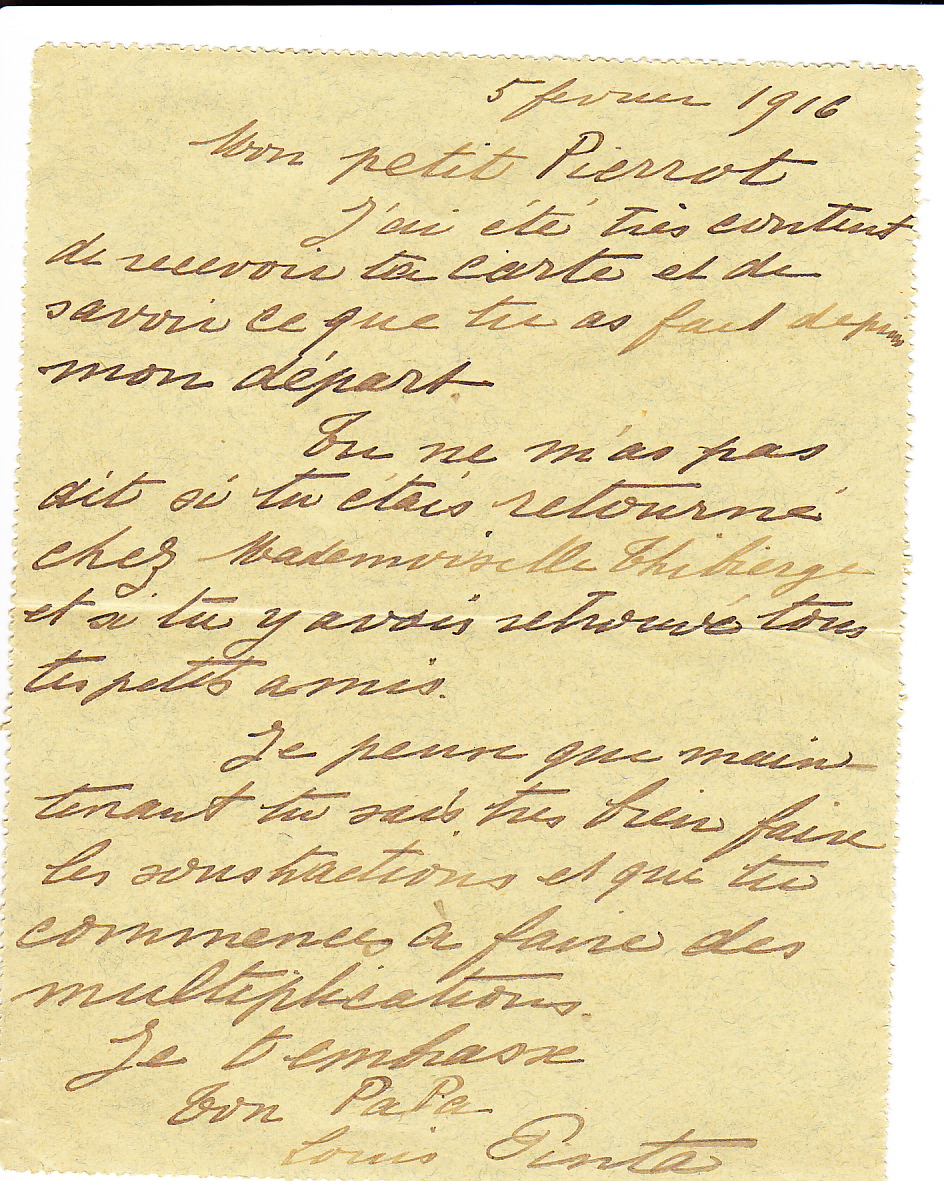 5 fevrier 1916
Mon petit Pierrot
J'ai été très content
de recevoir ta carte et de
savoir ce que tu as fait depuis
mon départ.
Tu ne m'as pas
dit si tu étais retourné
chez Mademoiselle Thibierge
et si tu y avais retrouvé tous
tes petits amis.
Je pense que main-
tenant tu sais très bien faire
les soustractions et que tu
commences à faire des
multiplications.
Je t'embrasse
Ton PaPa
Louis Pinta